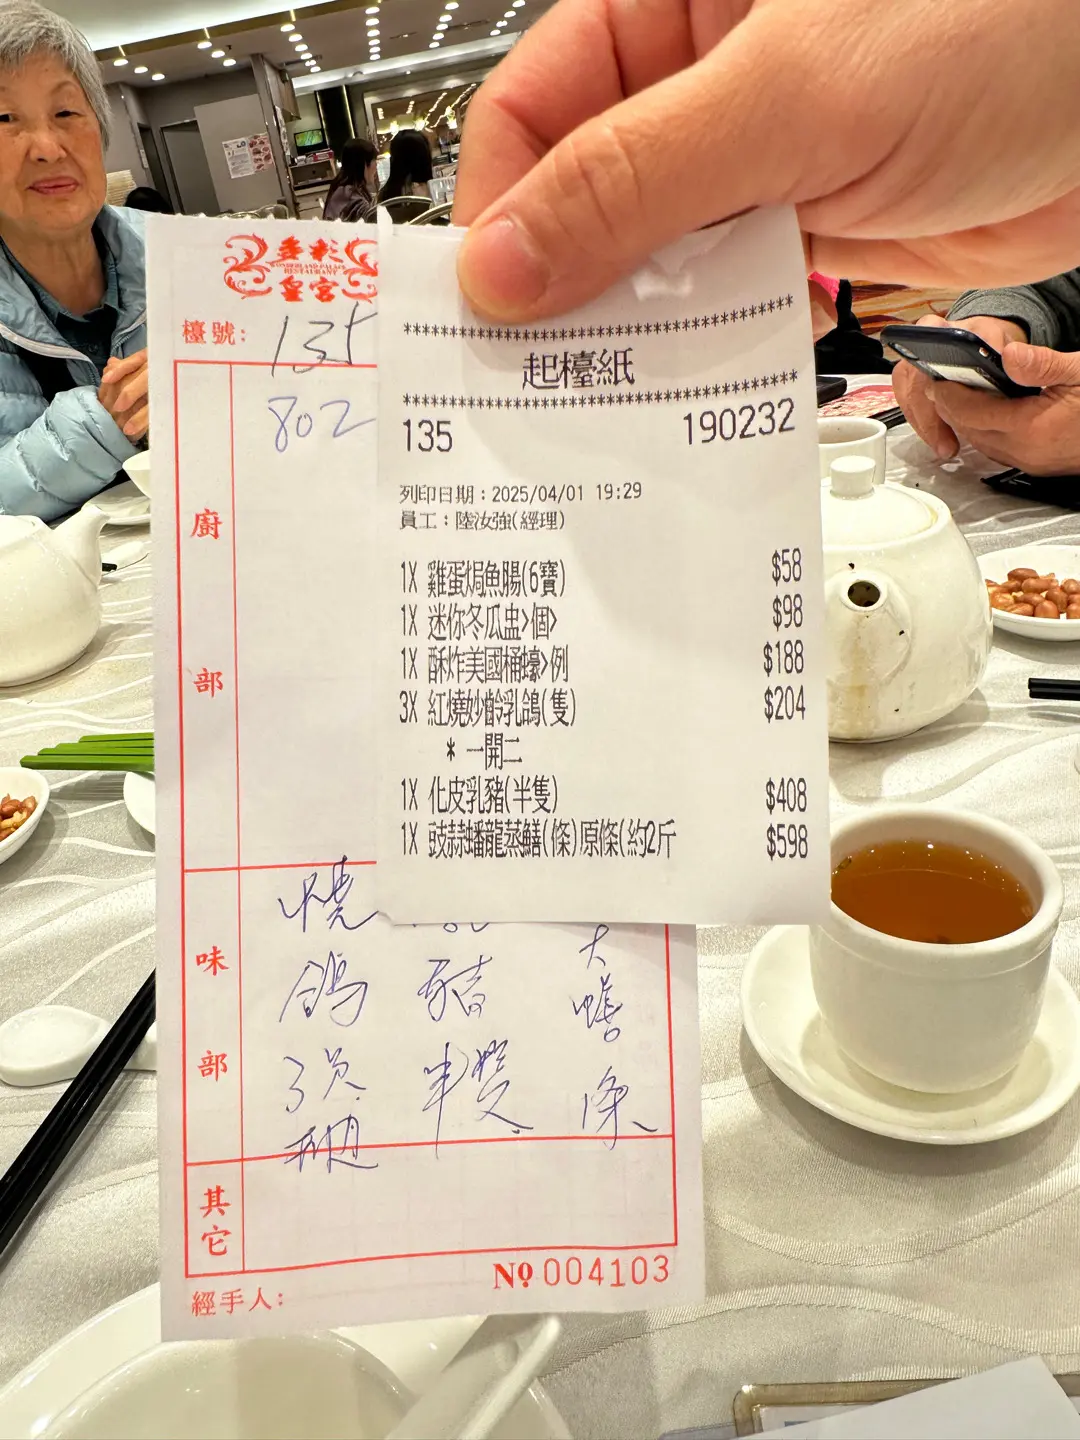 多彩
WONDERLAND PALACE
RESTAURANT
皇宮
檯號:
135
802
廚
部
味
部
燒
鴿
豬
半
大
條
其
它
經手人:
Nº 004103
************************************
起檯紙
************************************
135 190232
列印日期：2025/04/01 19:29
員工：陸汝強(經理)
1X 雞蛋焗魚腸(6寶) $58
1X 迷你冬瓜盅>個> $98
1X 酥炸美國桶蠔>例 $188
3X 紅燒妙齡乳鴿(隻) $204
* 一開二
1X 化皮乳豬(半隻) $408
1X 豉蒜蟠龍蒸鱔(條)原條(約2斤 $598